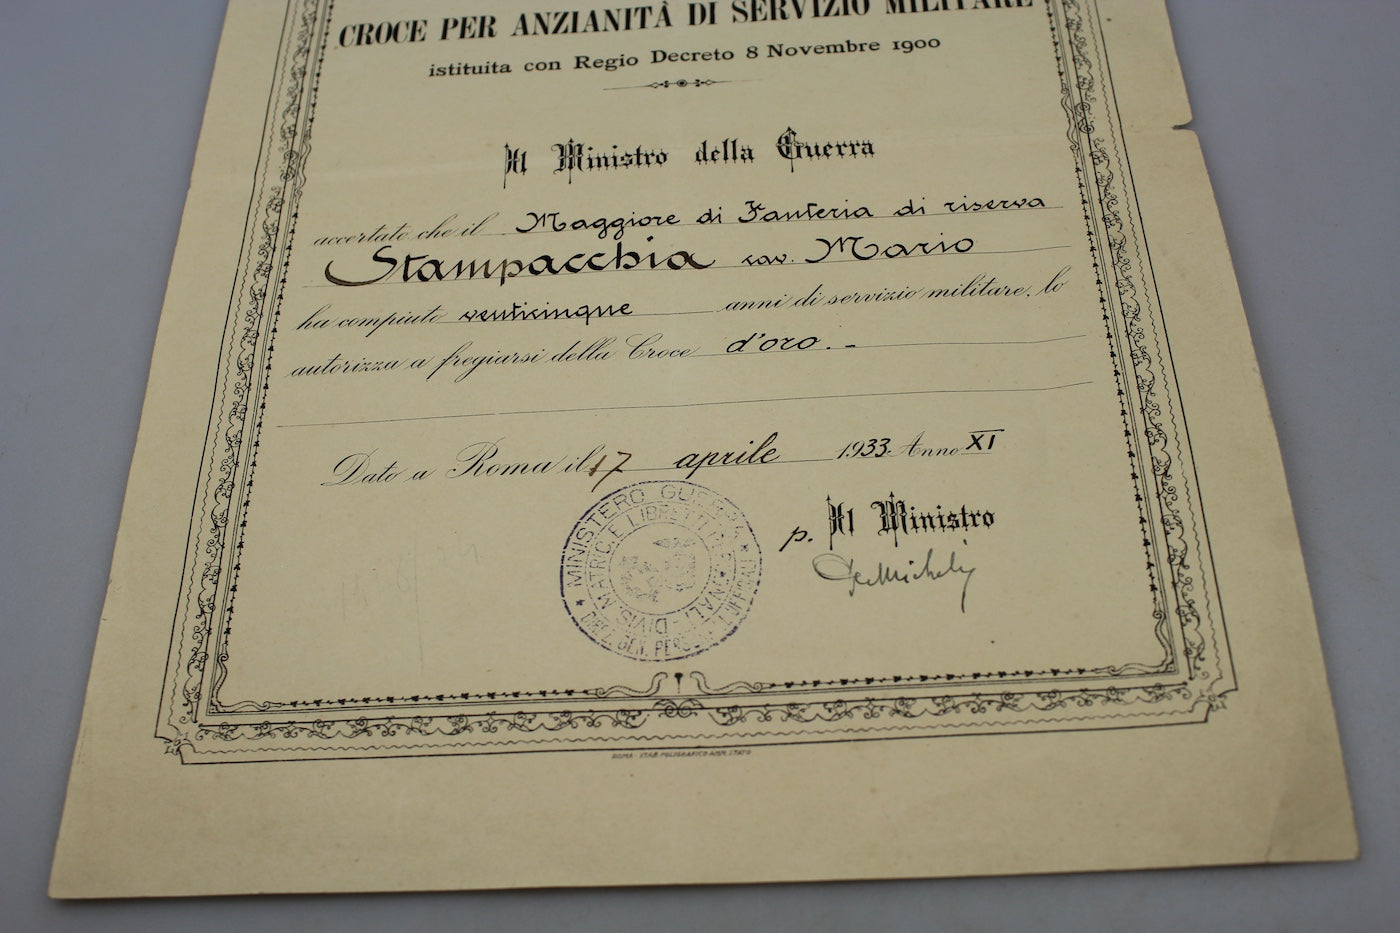 CROCE PER ANZIANITÀ DI SERVIZIO MILITARE
istituita con Regio Decreto 8 Novembre 1900
Il Ministro della Guerra
accertato che il Maggiore di Fanteria di riserva
Stampacchia cav. Mario
ha compiuto venticinque anni di servizio militare, lo
autorizza a fregiarsi della Croce d'oro. -
Dato a Roma il 17 aprile 1933 Anno XI
p. Il Ministro
DeMichelis
MINISTERO GUERRA
DIREZ. GEN. PERS. UFFICIALI
DIVIS. MATRIC. E LIBRETTI PERSONALI
ROMA - STAB. POLIGRAFICO AMM. STATO